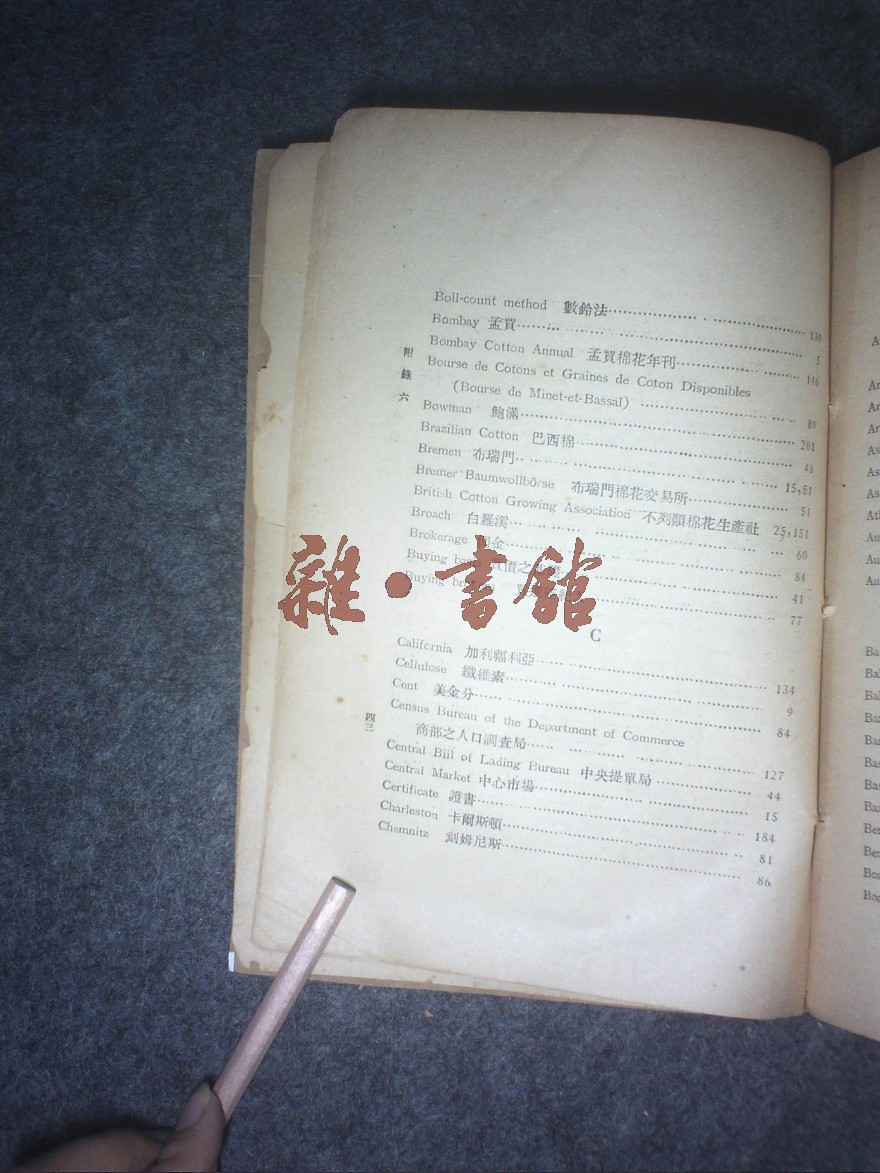 Boll-count method 數鈴法 130
Bombay 孟買 5
Bombay Cotton Annual 孟買棉花年刊 146
Bourse de Cotons et Graines de Coton Disponibles
(Bourse de Minet-et-Bassal) 89
Bowman 鮑滿 201
Brazilian Cotton 巴西棉 48
Bremen 布瑞門 15,51
Bremer Baumwollbörse 布瑞門棉花交易所 51
British Cotton Growing Association 不列顛棉花生產社 25,151
Broach 白羅溪 60
Brokerage 金 84
Buying 價之 41
Buying 77
C
California 加利福利亞 134
Cellulose 纖維素 9
Cent 美金分 84
Census Bureau of the Department of Commerce
商部之人口調查局 127
Central Bill of Lading Bureau 中央提單局 44
Central Market 中心市場 15
Certificate 證書 184
Charleston 卡爾斯頓 81
Chemnitz 刻姆尼斯 86
附錄六
四三
雜·書館
A
An
An
Ar
As
As
As
Atl
Au
Au
Au
Ba
Bal
Bal
Bar
Bar
Bas
Bas
Baz
Ber
Ber
Boa
Boa